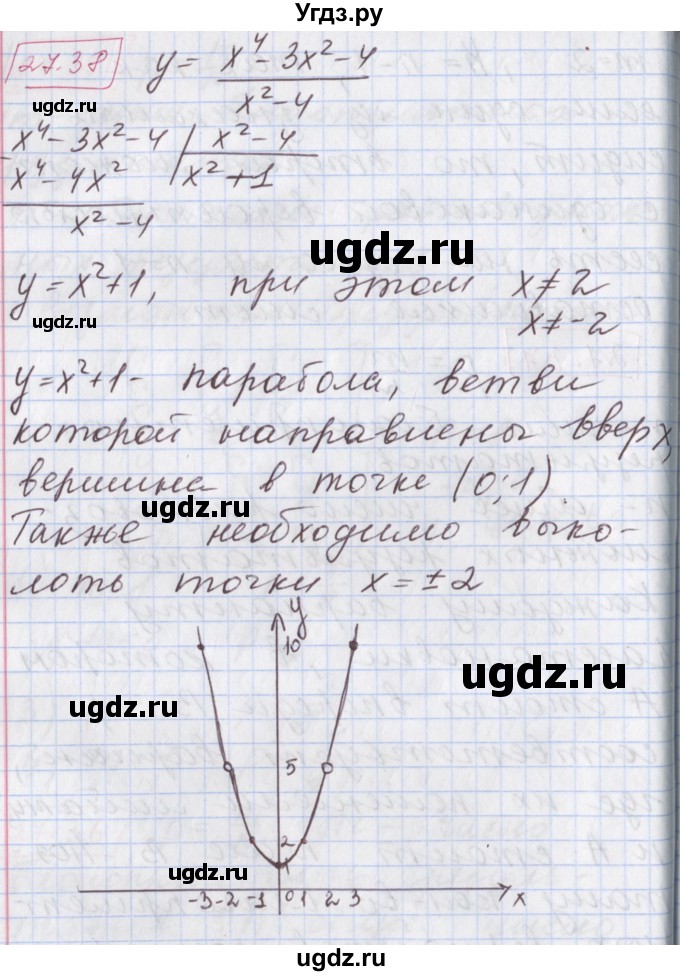 Угдз.ру
27.38 y = x⁴ - 3x² - 4 / x² - 4
ugdz.ru
x⁴ - 3x² - 4 | x² - 4
x⁴ - 4x² | x² + 1
x² - 4
ugdz.ru
y = x² + 1, при этом x ≠ 2
ugdz.ru
x ≠ -2
y = x² + 1 - парабола, ветви
которой направлены вверх,
вершина в точке (0; 1)
ugdz.ru
Также необходимо выко-
лоть точки x = ± 2
y
10
ugdz.ru
ugdz.ru
5
2
ugdz.ru
1
-3 -2 -1 0 1 2 3 x
ugdz.ru
Угдз.ру